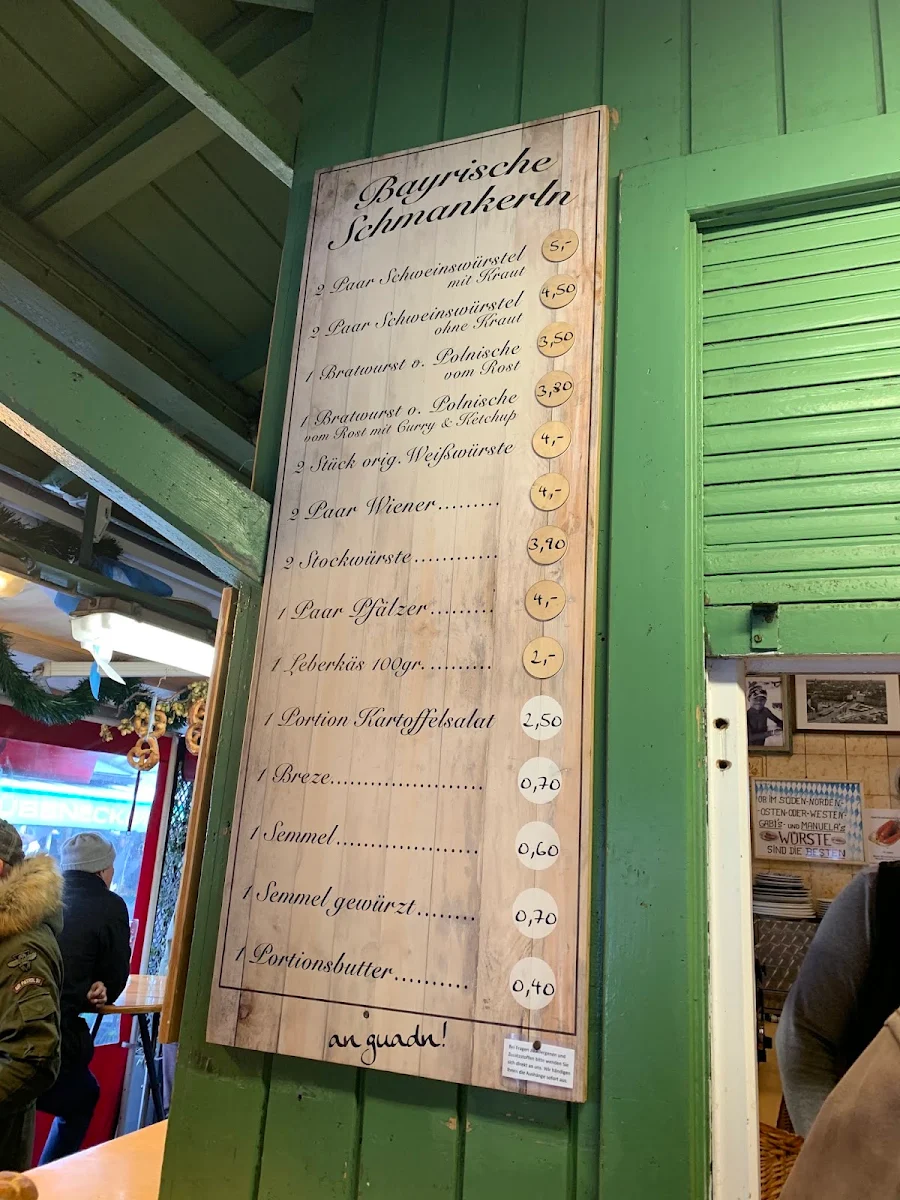 Bayrische
Schmankerln
2 Paar Schweinswürstel 5,-
mit Kraut
2 Paar Schweinswürstel 4,50
ohne Kraut
1 Bratwurst o. Polnische 3,50
vom Rost
1 Bratwurst o. Polnische 3,80
vom Rost mit Curry & Ketchup
2 Stück orig. Weißwürste 4,-
2 Paar Wiener......... 4,-
2 Stockwürste............ 3,90
1 Paar Pfälzer......... 4,-
1 Leberkäs 100gr. ......... 2,-
1 Portion Kartoffelsalat 2,50
1 Breze...................... 0,70
1 Semmel.................... 0,60
1 Semmel gewürzt........ 0,70
1 Portionsbutter.......... 0,40
an guadn!
Bei Fragen zu Allergenen und
Zusatzstoffen bitte wenden Sie
sich direkt an uns. Wir händigen
Ihnen die Aushänge sofort aus.
OB IM SÜDEN-NORDEN-
-OSTEN-ODER-WESTEN-
GABI'S- UND MANUELA'S
WÜRSTE
SIND DIE BESTEN